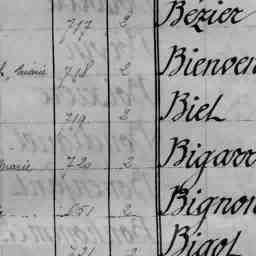 717 2 Bézier
718 2 Bienven
719 2 Biel
marie 720 2 Bigarr
2 Bignon
721 2 Bigot